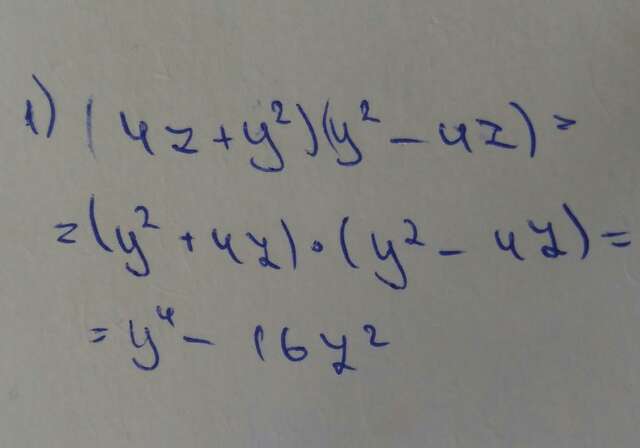 1) (4z+y²)(y²-4z)=
=(y²+4z)·(y²-4z)=
=y⁴-16z²